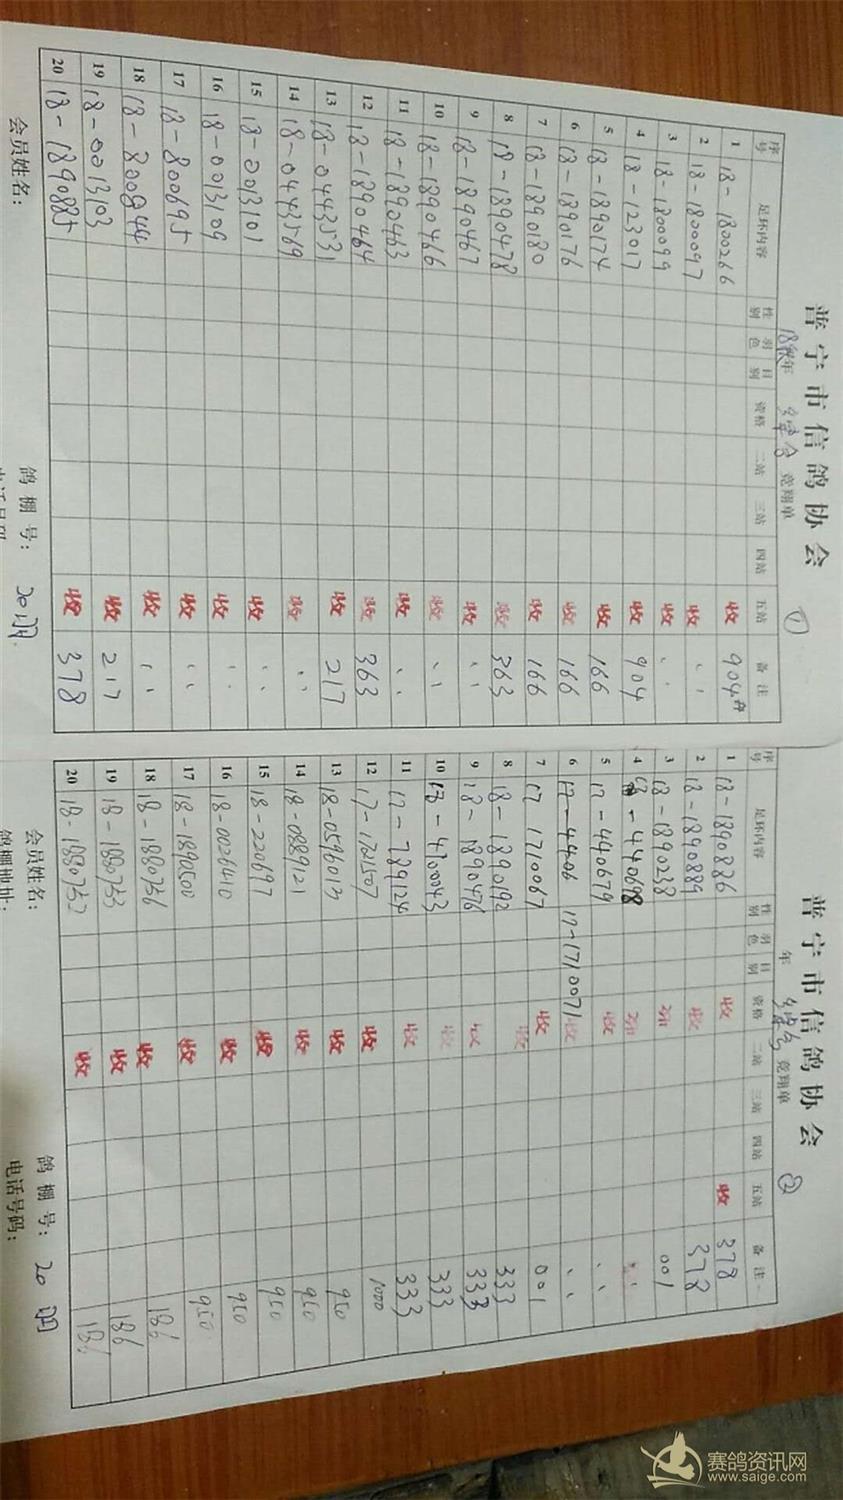 普宁市信鸽协会
18秋年 竞翔单 ①
序号 足环内容 性别 羽色 目别 资格 二站 三站 四站 五站 备注
1 18-1800266 收 904
2 18-1800097 收 〃
3 18-1800099 收 〃
4 18-123017 收 904
5 18-1890174 收 166
6 18-1890176 收 166
7 18-1890180 收 166
8 18-1890478 收 363
9 18-1890467 收 〃
10 18-1890466 收 〃
11 18-1890463 收 〃
12 18-1890464 收 363
13 18-0443531 收 217
14 18-0443569 收 〃
15 18-0013101 收 〃
16 18-0013109 收 〃
17 18-800695 收 〃
18 18-800944 收 〃
19 18-0013103 收 217
20 18-1890885 收 378
会员姓名：
鸽棚号： 20
普宁市信鸽协会
年 竞翔单 ②
序号 足环内容 性别 羽色 目别 资格 二站 三站 四站 五站 备注
1 18-1890886 收 收 378
2 18-1890889 收 378
3 18-1890238 001
4 440698 〃
5 17-440679 收 〃
6 17-4406 17-1710071 收 〃
7 17 1710067 收 001
8 18-1890192 收 333
9 18-1890476 收 333
10 4100043 收 333
11 17-789124 收 333
12 17-1721507 收 1000
13 18-0596013 收 950
14 18-0889121 收 950
15 18-220697 收 950
16 18-0026410 收 950
17 18-1890500 收 950
18 18-1880756 收 186
19 18-1880753 收 186
20 18-1880752 收 186
会员姓名：
鸽棚号： 20
鸽棚地址：
电话号码：
赛鸽资讯网
www.saige.com